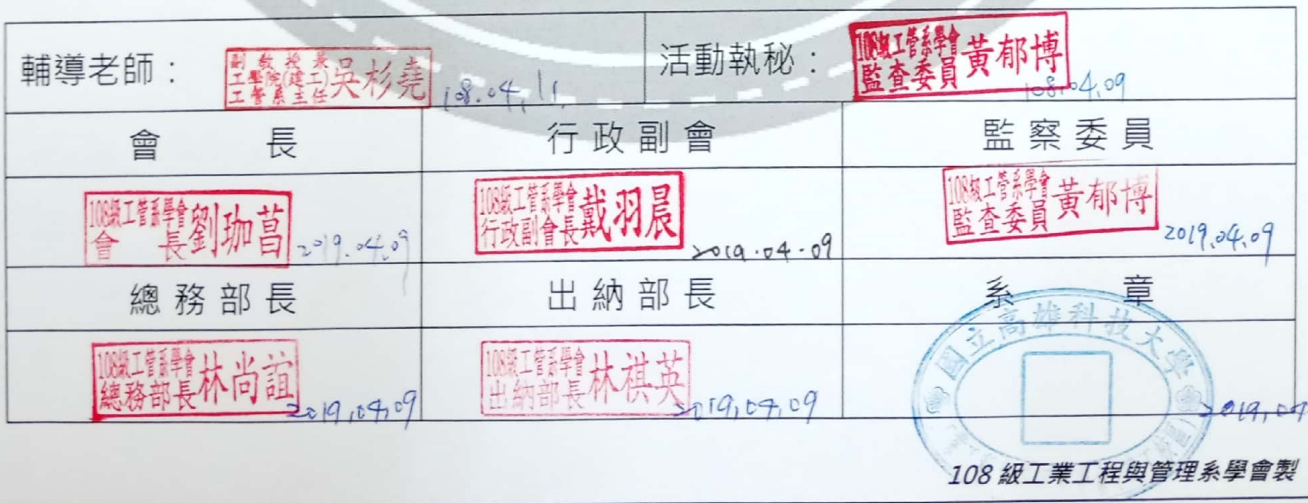 輔導老師：
副教授兼
工學院(建工)
工管系主任
吳杉堯
108.04.11.
活動執秘：
108級工管系學會
監查委員
黃郁博
108.04.09
會長
行政副會
監察委員
108級工管系學會
會長
劉珈菖
2019.04.09
108級工管系學會
行政副會長
戴羽晨
2019.04.09
108級工管系學會
監查委員
黃郁博
2019.04.09
總務部長
出納部長
系章
108級工管系學會
總務部長
林尚誼
2019.04.09
108級工管系學會
出納部長
林祺英
2019.04.09
國立高雄科技大學
2019.04
108 級工業工程與管理系學會製